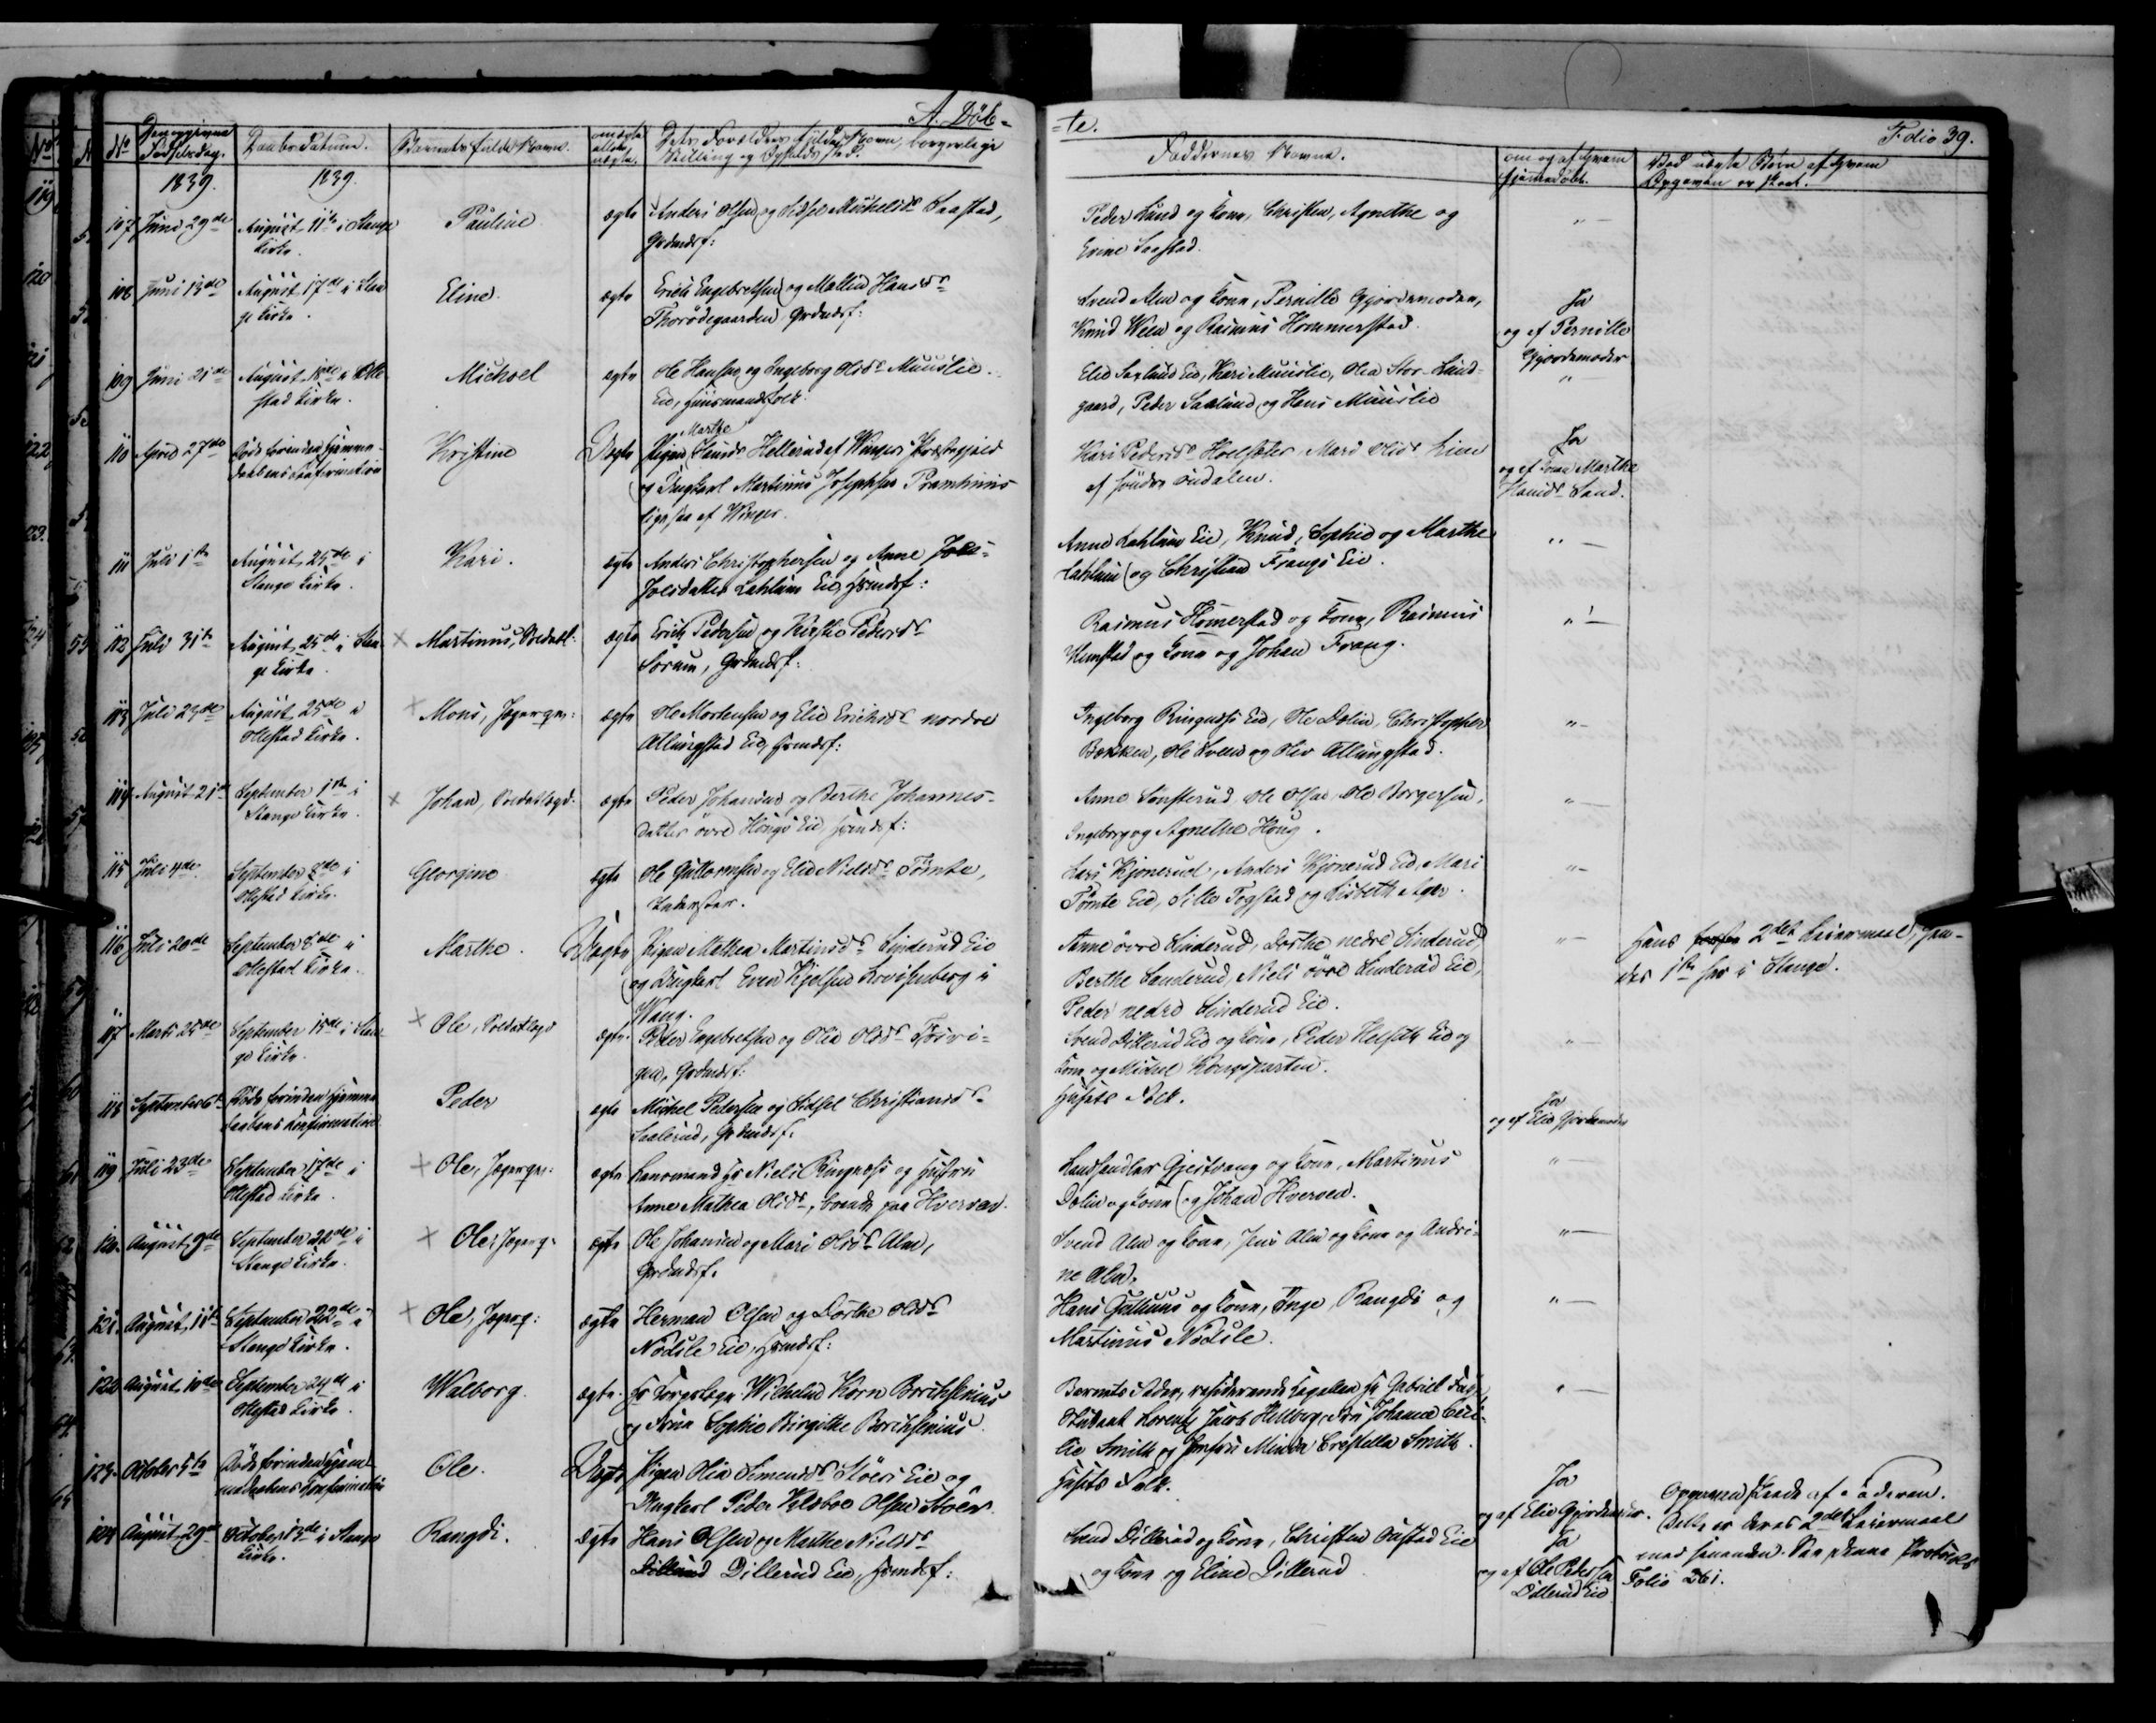 A. Döb-
-te.
Folio 39.
No Den opgivne Fødselsdag. Daabs Datum. Barnets fulde Navn. om ægte eller uægte. Dets Forældres fulde Navn, borgerlige Stilling og Opholds Sted.
Faddernes Navne. om og af hvem hjemmedøbt. Ved uægte Børn af hvem Opgaven er skeet.
1839. 1839.
107 Juni 29de August 11te i Stange Kirke. Pauline ægte Anders Olsen og Sidsel Michelsdr Saastad, Grdmdsf:
Peder Lund og Kone, Christen, Agnethe og Erine Saastad.
108 Juni 13de August 17de i Stange Kirke. Eline. ægte Erich Engebretsen og Mallin Hansdr Thorödegaarden Grdmdsf:
Svend Alm og Kone, Pernille Gjordemoder, Knud Ween og Rasmus Hommerstad.
Ja og af Pernille Gjordemoder
109 Juni 21de August 18de i Ottestad Kirke. Michael ægte Ole Hansen og Ingeborg Olsdr Muuslie Eie, Huusmandsfolk
Elie Saxlund Eie, Kari Muuslie, Olea Stor-Lundgaard, Peder Saxlund og Hans Muuslie
110 April 27de Døde forinden Hjemmedaabens Confirmation Kristine Uægte Pigen Marthe Hansdr Hellerud af Wingers Præstegjeld og Ungkarl Martinus Josephsen af Winger.
Kari Pedersdr Holsæter, Mari Olsdr Lien af söndre Oudalen.
Ja og af Kone Marthe Hansdr Sand.
111 Juli 1te August 25de i Stange Kirke. Kari. ægte Anders Christophersen og Anne Joelsdatter Lahlum Eie, Hsmdsf:
Anne Lahlum Eie, Knud, Sophie og Marthe Lahlum og Christian Frangs Eie.
112 Juli 31te August 25de i Stange Kirke. × Martinus, Soldatl: ægte Erich Pedersen og Kirstie Pedersdr Sorum, Grdmdsf:
Rasmus Homerstad og Kone, Rasmus og Kone og Johan Frang.
113 Juli 23de August 25de i Ottestad Kirke. × Mons, Jægerqv: ægte Ole Mortensen og Elie Erichsdr nordre Allungstad Eie, Hsmdsf:
Ingeborg Ringnæs Eie, Ole Dolin, Christopher Bækken, Ole Sveen og Oliv Allungstad.
114 August 21de September 1te i Stange Kirke. × Johan, Soldatlægd: ægte Peder Johansen og Berthe Johannesdatter övre Hougs Eie, Hsmdsf:
Anne Sönsterud, Ole Olsen, Ole Borgersen, Ingeborg og Agnethe Houg.
115 Juli 4de September 8de i Ottestad Kirke. Georgine ægte Ole Guttormsen og Elie Nielsdr Tömte,
Lars Kjönerud, Anders Kjönerud Eie, Mari Tömte Eie, Sille Togstad og Lisbeth Ager.
116 Juli 20de September 8de i Ottestad Kirke. Marthe. Uægte Pigen Mathea Martinsdr Sinderud Eie og Ungkarl Even Kjelsen Lovisenberg i Wang.
Anne övre Sinderud, Dorthe nedre Sinderud, Berthe Sanderud, Niels övre Sinderud Eie, Peder nedre Sinderud Eie.
Hans 2det Leiermaal, hendes 1te her i Stange.
117 Marts 25de September 15de i Stange Kirke. × Ole, Soldatlægd ægte. Peder Engebretsen og Olia Olsdr Grdmdsf:
Svend Dillerud Eie og Kone, Peder Helseth Eie og Kone og Michel Kongsparten.
118 September 6te Døde forinden Hjemmedaabens Confirmation Peder ægte Michel Pedersen og Sidsel Christiansdr Saalerud, Grdmdsf:
Husets Folk.
Ja og af Elie Gjordemoder
119 Juli 23de September 17de i Ottestad Kirke. × Ole, Jægerqv: ægte Lensmand Hr Niels Ringnæs og Hustru Anne Mathea Olsdr, boende paa Hverven.
Landhandler Gjestvang og Kone, Martinus Dolin og Kone og Johan Hverven.
120. August 9de September 22de i Stange Kirke. × Ole, Jægerq. ægte Ole Johansen og Mari Olsdr Alm, Grdmdsf.
Svend Alm og Kone, Jens Alm og Kone og Andrine Alm.
121. August 11te September 22de i Stange Kirke. × Ole, Jægerq: ægte Herman Olsen og Dorthe Olsdr Nödsle Eie, Hsmdsf:
Hans Gutuus og Kone, Inge, Rangdi og Martinus Nödsle.
122 August 10de September 24de i Ottestad Kirke. Walborg. ægte. Hr Korpslæge Wilhelm Korn Borchsenius og Frue Sophie Birgithe Borchsenius
Barnets Fader, residerende Capellan Hr Gabriel Student Lorentz Jacob Hellberg, Fru Johanne Cecilie Smith og Jomfru Minda Crestella Smith.
123. October 5te Døde forinden Hjemmedaabens Confirmation Ole. Uægte Pigen Olia Simensdr Stöers Eie og Ungkarl Peder Olsen Stöer.
Husets Folk.
Ja og af Elie Gjordemoder.
Opgaven skeede af Faderen. Dette er deres 2det Leiermaal med hinanden. See denne Protocols Folio 261.
124 August 29de October 13de i Stange Kirke. Rangdi. Ægte Hans Olsen og Marthe Nielsdr Dillerud Eie, Hsmdsf:
Svend Dillerud og Kone, Christen Oustad Eie og Kone og Eline Dillerud
Ja og af Ole Pedersen Dillerud Eie